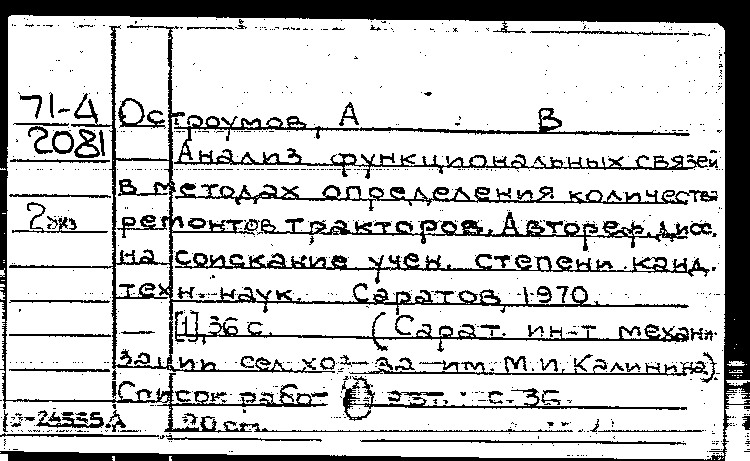 71-4 Остроумов, А В
2081
Анализ функциональных связей
в методах определения количества
2 экз ремонтов тракторов. Автореф. дисс.
на соискание учен. степени канд.
техн. наук. Саратов, 1970.
— [1], 36 с. (Сарат. ин-т механи-
зации сел. хоз-ва им. М.И. Калинина)
Список работ авт.: с. 36.
20 см.